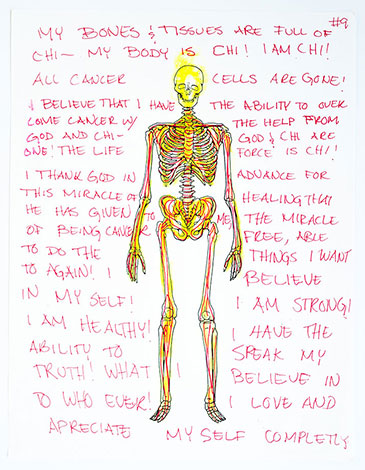 #9
MY BONES & TISSUES ARE FULL OF
CHI— MY BODY IS CHI! I AM CHI!
ALL CANCER CELLS ARE GONE!
I BELIEVE THAT I HAVE THE ABILITY TO OVER
COME CANCER W/ THE HELP FROM
GOD AND CHI— GOD & CHI ARE
ONE! THE LIFE FORCE IS CHI!
I THANK GOD IN ADVANCE FOR
THIS MIRACLE OF HEALING THAT
HE HAS GIVEN TO ME, THE MIRACLE
OF BEING CANCER FREE, ABLE
TO DO THE THINGS I WANT
TO AGAIN! I BELIEVE
IN MY SELF! I AM STRONG!
I AM HEALTHY! I HAVE THE
ABILITY TO SPEAK MY
TRUTH! WHAT I BELIEVE IN
TO WHO EVER! I LOVE AND
APRECIATE MY SELF COMPLETLY